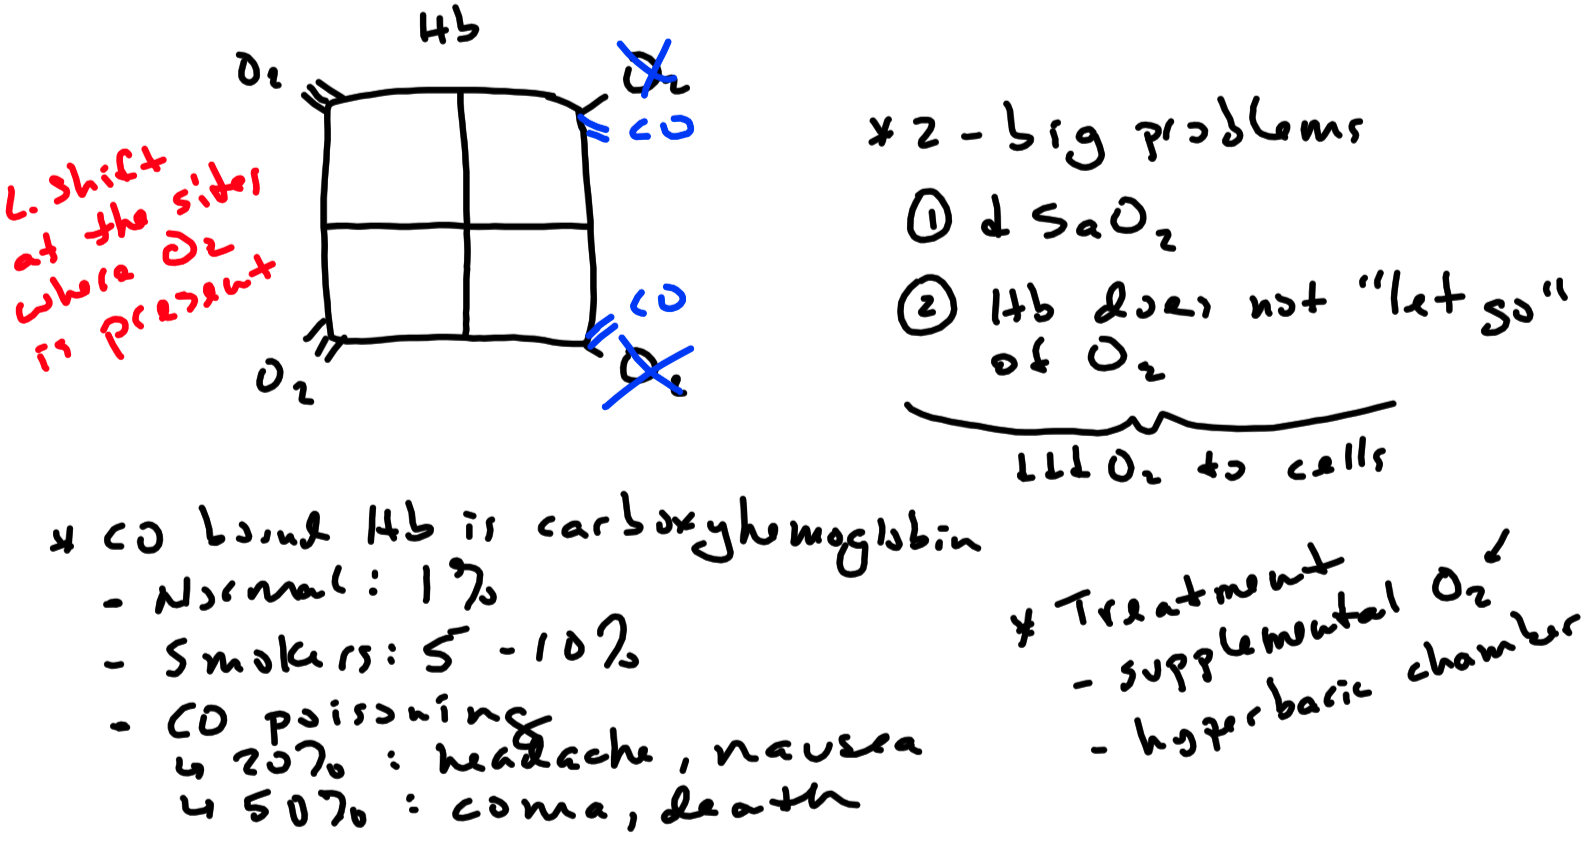 Hb
O₂
O₂
CO
L. shift
at the sites
where O₂
is present
CO
O₂
O₂
* 2 - big problems
① ↓ SaO₂
② Hb does not "let go"
of O₂
↓↓↓ O₂ to cells
* CO bound Hb is carboxyhemoglobin
- Normal: 1%
- Smokers: 5 - 10%
- CO poisoning
↳ 20% : headache, nausea
↳ 50% : coma, death
* Treatment
- supplemental O₂ ↙
- hyperbaric chamber